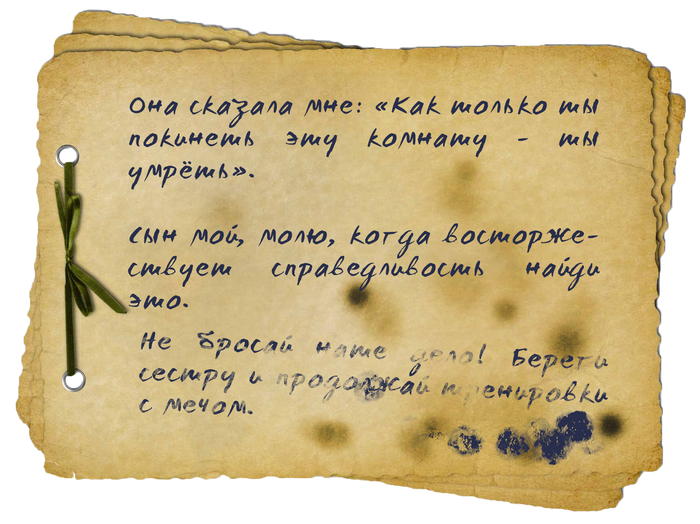 Она сказала мне: «Как только ты
покинеть эту комнату - ты
умрёть».
Сын мой, молю, когда восторже-
ствует справедливость найди
это.
Не бросай наше дело! Береги
сестру и продолжай тренировки
с мечом.